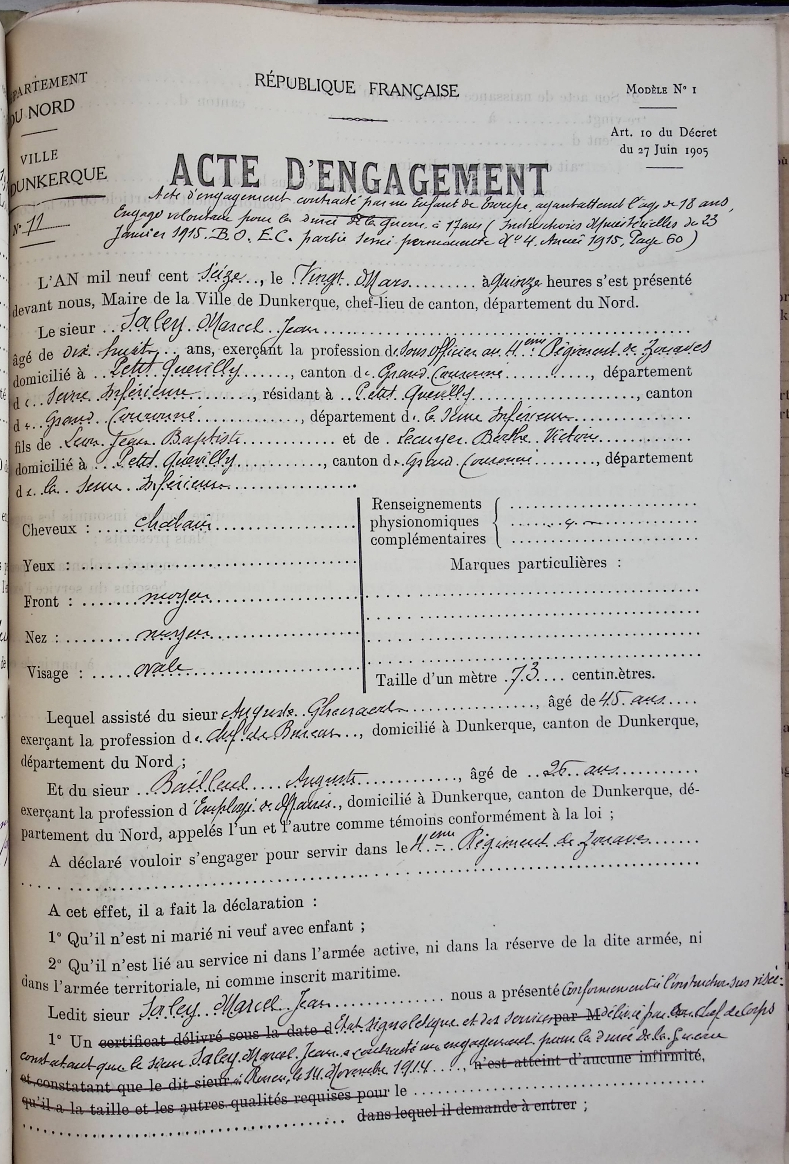 PARTEMENT
DU NORD
VILLE
DUNKERQUE
N° 11
RÉPUBLIQUE FRANÇAISE
MODÈLE N° 1
Art. 10 du Décret
du 27 Juin 1905
ACTE D'ENGAGEMENT
Acte d'engagement contracté par un Enfant de Troupe, ayant atteint l'âge de 18 ans,
Engagé volontaire pour la durée de la guerre à 17 ans (Instructions Ministérielles du 23
Janvier 1915. B.O. E.C. partie semi permanente N° 4. Année 1915, Page 60)
L'AN mil neuf cent Seize, le Vingt Mars à quinze heures s'est présenté
devant nous, Maire de la Ville de Dunkerque, chef-lieu de canton, département du Nord.
Le sieur Saley Marcel Jean
âgé de dix huit ans, exerçant la profession de Sous Officier au 4ème Régiment de Zouaves
domicilié à Petit Quevilly, canton de Grand Couronné, département
de Seine Inférieure, résidant à Petit Quevilly, canton
de Grand Couronné, département de la Seine Inférieure
fils de Jean Baptiste et de Lecuyer Berthe Victoire
domicilié à Petit Quevilly, canton de Grand Couronné, département
de la Seine Inférieure
Cheveux : chatain
Yeux :
Front : moyen
Nez : moyen
Visage : ovale
Renseignements
physionomiques
complémentaires
Marques particulières :
Taille d'un mètre 73 centimètres.
Lequel assisté du sieur Auguste, âgé de 45 ans
exerçant la profession de Chef de Bureau, domicilié à Dunkerque, canton de Dunkerque,
département du Nord ;
Et du sieur Bailleul Auguste, âgé de 26 ans
exerçant la profession d'Employé de Mairie, domicilié à Dunkerque, canton de Dunkerque, dé-
partement du Nord, appelés l'un et l'autre comme témoins conformément à la loi ;
A déclaré vouloir s'engager pour servir dans le 4ème Régiment de Zouaves
A cet effet, il a fait la déclaration :
1° Qu'il n'est ni marié ni veuf avec enfant ;
2° Qu'il n'est lié au service ni dans l'armée active, ni dans la réserve de la dite armée, ni
dans l'armée territoriale, ni comme inscrit maritime.
Ledit sieur Saley Marcel Jean nous a présenté Conformément à l'instruction sus visée :
1° Un certificat délivré sous la date d Etat signalétique et des services par M délivré par Chef de Corps
constatant que le sieur Saley Marcel Jean a contracté un engagement pour la durée de la Guerre
et constatant que le dit sieur à Rouen, le 14 Novembre 1914, n'est atteint d'aucune infirmité,
qu'il a la taille et les autres qualités requises pour le
dans lequel il demande à entrer ;